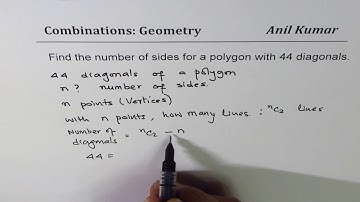 Combinations: Geometry Anil Kumar
Find the number of sides for a polygon with 44 diagonals.
44 diagonals of a polygon
n ? number of sides.
n points (Vertices)
with n points, how many lines : ⁿC₂ lines
Number of diagonals = ⁿC₂ – n
44 =